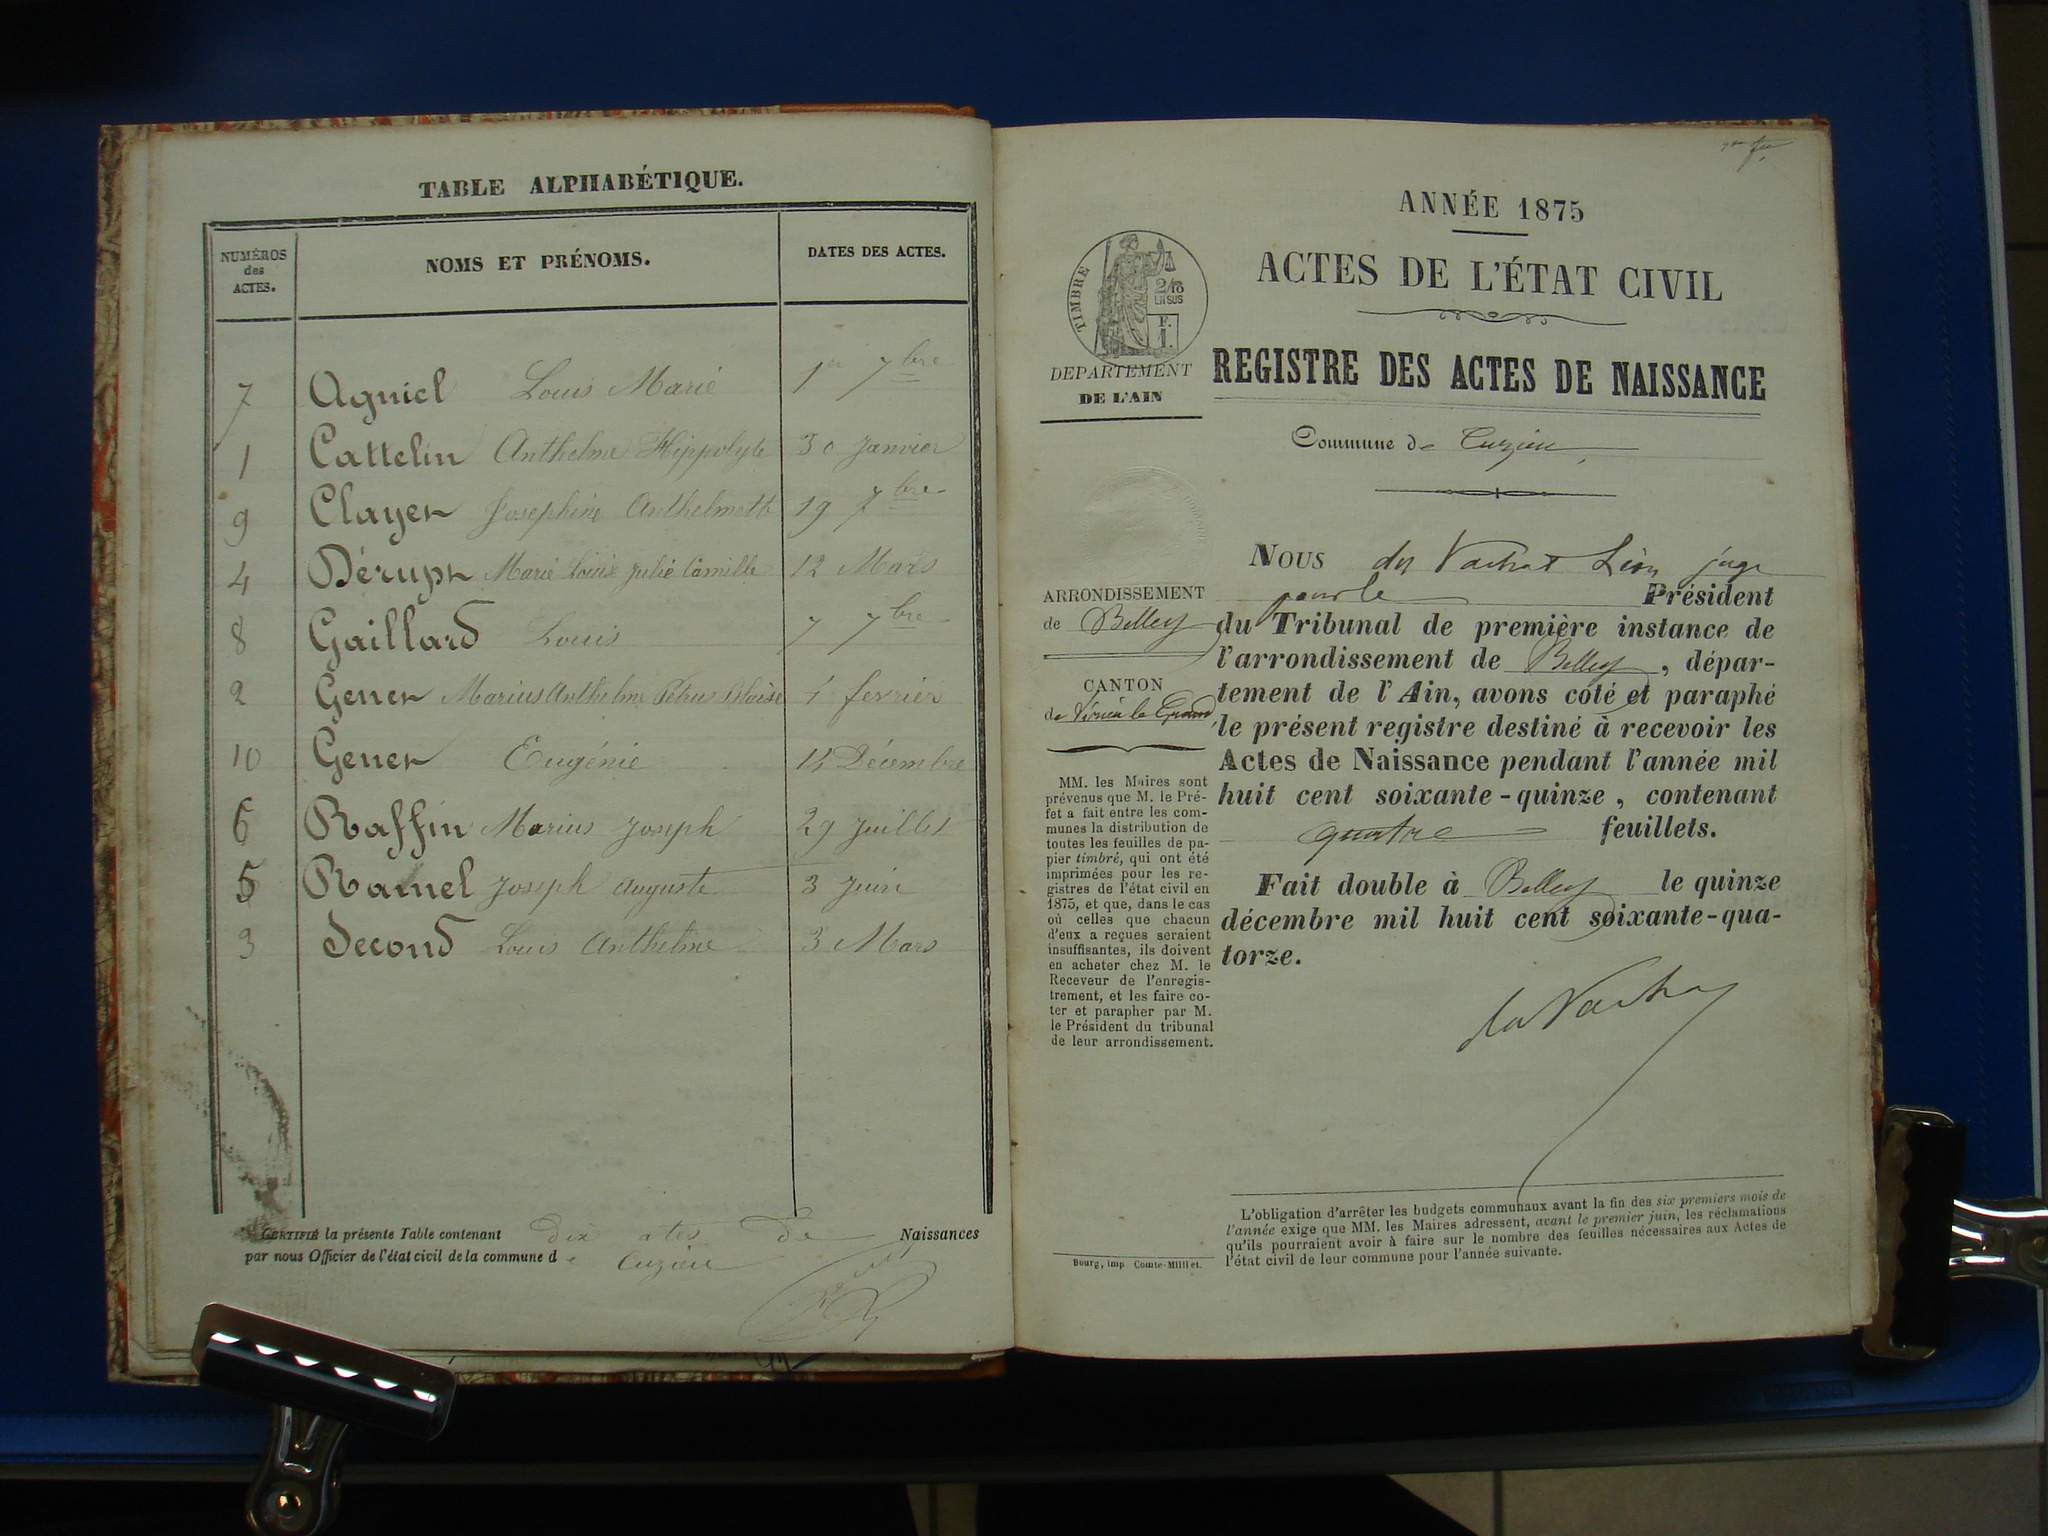 TABLE ALPHABÉTIQUE.
NUMÉROS des ACTES. NOMS ET PRÉNOMS. DATES DES ACTES.
7 Agniel Louis Marie 1er 7bre
1 Cattelin Anthelme Hippolyte 30 Janvier
9 Clayer Josephine Anthelmette 19 7bre
4 Dérupt Marie Louise Julie Camille 12 Mars
8 Gaillard Louis 7 7bre
2 Gener Marius Anthelme Petrus 1 fevrier
10 Gener Eugénie Décembre
6 Raffin Marius Joseph 29 Juillet
5 Ramel Joseph Auguste 3 Juin
3 Second Louis Anthelme 3 Mars
CERTIFIÉ la présente Table contenant dix ates de Naissances
par nous Officier de l'état civil de la commune de Cuzieu
ANNÉE 1875
ACTES DE L'ÉTAT CIVIL
REGISTRE DES ACTES DE NAISSANCE
Commune de Cuzieu
TIMBRE
2/10
EN SUS
F.
1.
DÉPARTEMENT
DE L'AIN
ARRONDISSEMENT
de Belley
CANTON
de Virieu le Grand
MM. les Maires sont
prévenus que M. le Pré-
fet a fait entre les com-
munes la distribution de
toutes les feuilles de pa-
pier timbré, qui ont été
imprimées pour les re-
gistres de l'état civil en
1875, et que, dans le cas
où celles que chacun
d'eux a reçues seraient
insuffisantes, ils doivent
en acheter chez M. le
Receveur de l'enregis-
trement, et les faire co-
ter et parapher par M.
le Président du tribunal
de leur arrondissement.
Bourg, imp. Comte-Milliet.
NOUS du Vachat Léon juge
pour le Président
du Tribunal de première instance de
l'arrondissement de Belley, dépar-
tement de l'Ain, avons coté et paraphé
le présent registre destiné à recevoir les
Actes de Naissance pendant l'année mil
huit cent soixante-quinze, contenant
quatre feuillets.
Fait double à Belley le quinze
décembre mil huit cent soixante-qua-
torze.
du Vachat
L'obligation d'arrêter les budgets communaux avant la fin des six premiers mois de
l'année exige que MM. les Maires adressent, avant le premier juin, les réclamations
qu'ils pourraient avoir à faire sur le nombre des feuilles nécessaires aux Actes de
l'état civil de leur commune pour l'année suivante.